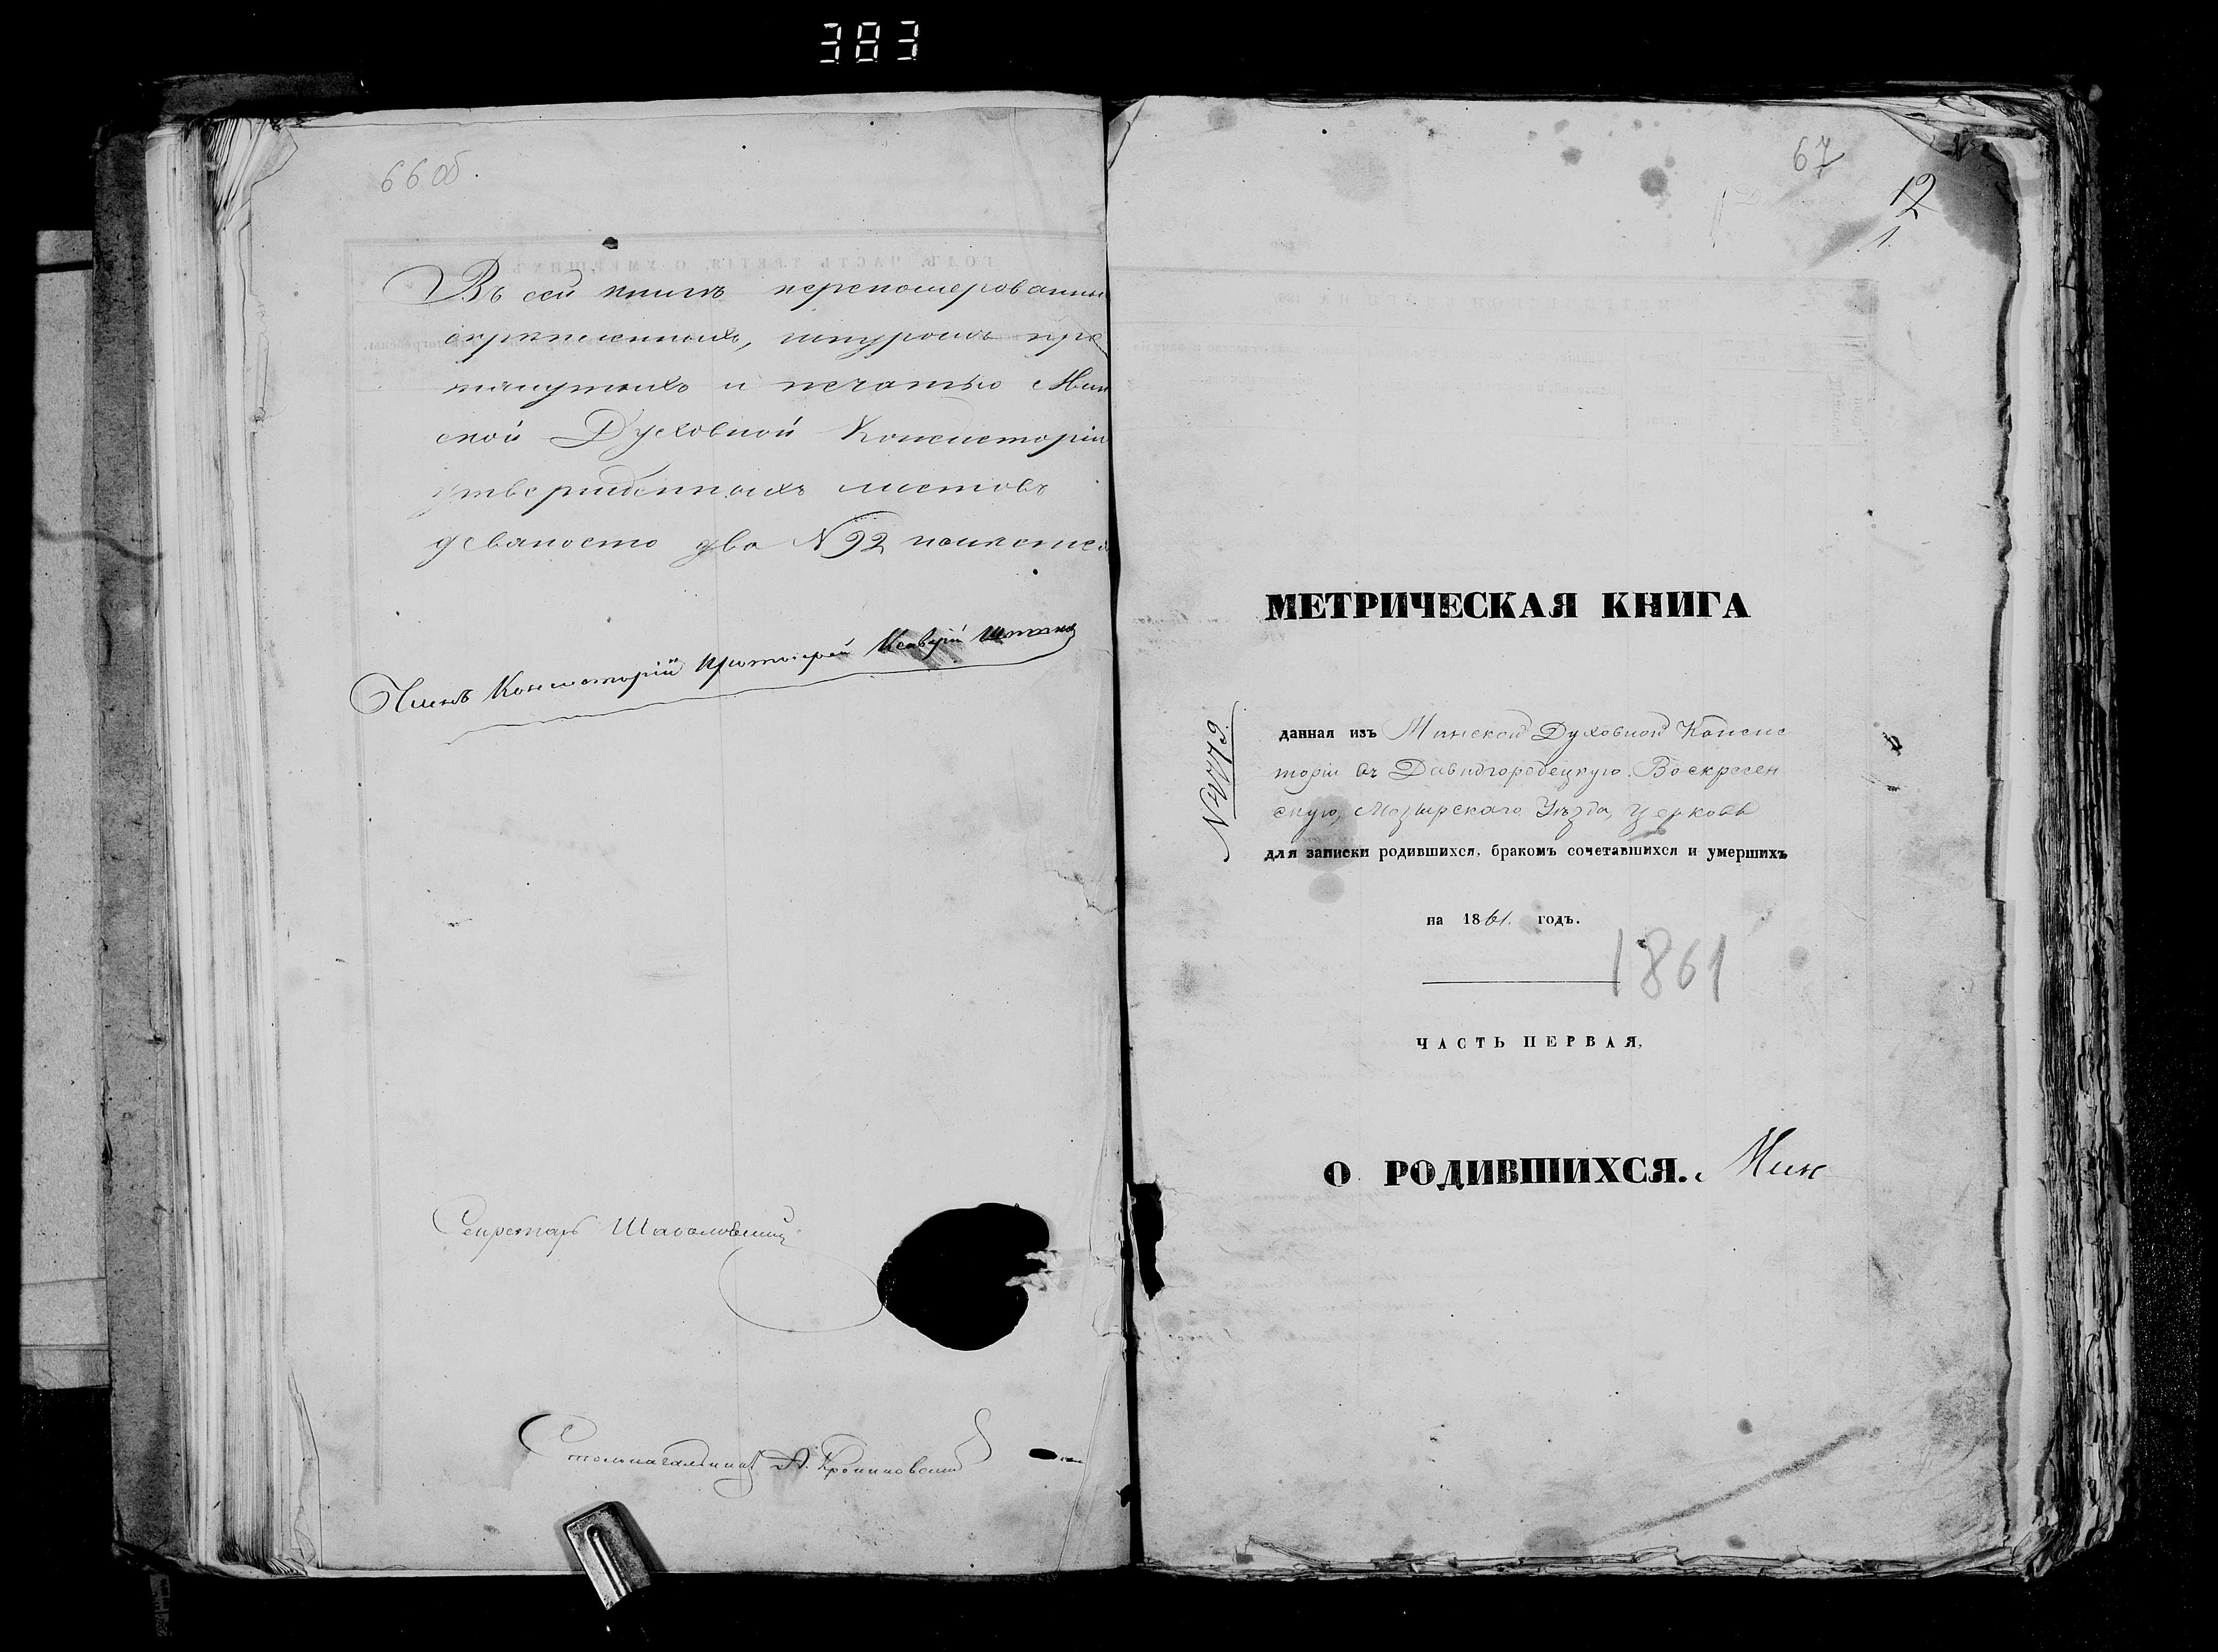 383
66 об.
Въ сей книгѣ перенумерованны
скрѣпленныхъ, шнуромъ про
тянутыхъ и печатью Мин
ской Духовной Консисторіи
утвержденныхъ листовъ
девяносто два N 92
Членъ Консисторіи Протоіерей Ксаверій
Секретарь
Столоначальникъ
67
12
1.
МЕТРИЧЕСКАЯ КНИГА
данная изъ Минской Духовной Консис
торіи въ Давидгородецкую Воскресен
скую, Мозырскаго Уѣзда, Церковь
для записки родившихся, бракомъ сочетавшихся и умершихъ
на 1861. годъ.
1861
ЧАСТЬ ПЕРВАЯ,
О РОДИВШИХСЯ. Мин